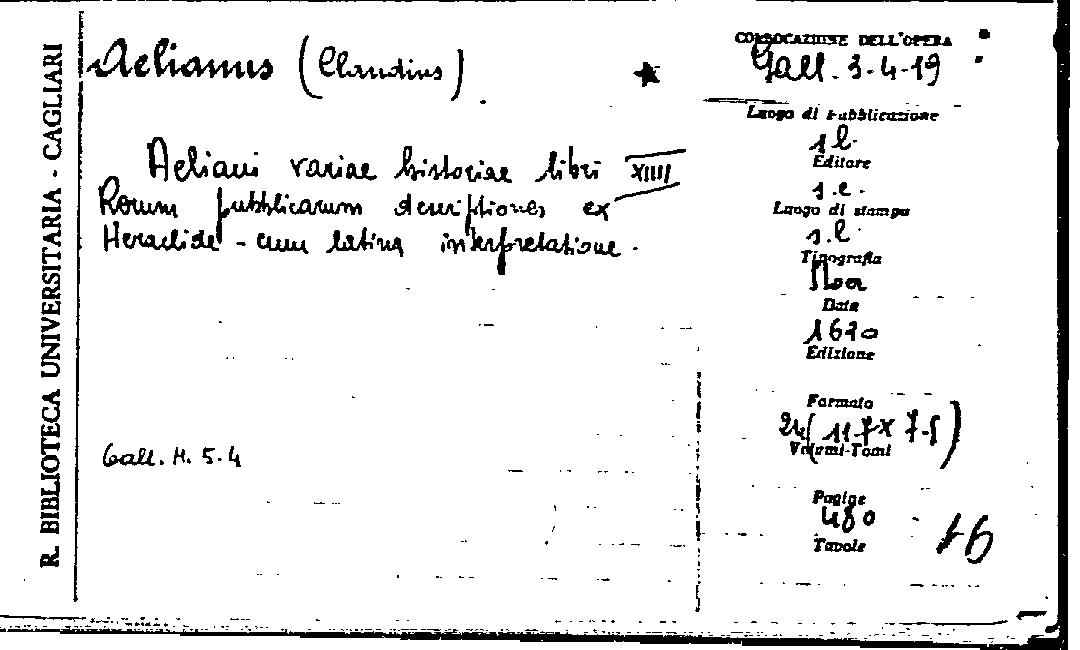 R. BIBLIOTECA UNIVERSITARIA - CAGLIARI
Aelianus (Claudius)
Aeliani variae historiae libri XIIII
Rerum pubblicarum descriptiones ex
Heraclide - cum latina interpretatione.
Gall. H. 5. 4
COLLOCAZIONE DELL'OPERA
Gall. 3-4-19
Luogo di Pubblicazione
s.l.
Editore
s.e.
Luogo di stampa
s.l.
Tipografia
Data
Edizione
Formato
24 (11.7 x 7.5)
Volumi-Tomi
Pagine
480
Tavole
16